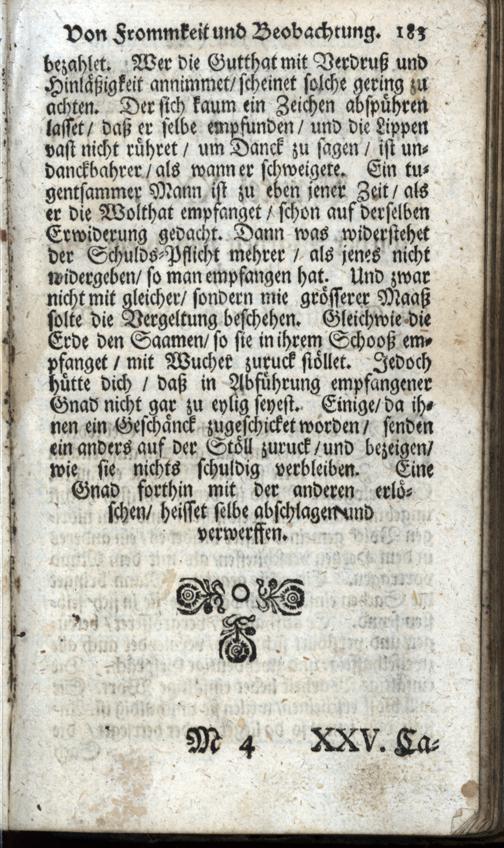 Von Frommkeit und Beobachtung. 183
bezahlet. Wer die Gutthat mit Verdruß und
Hinläßigkeit annimmet/ scheinet solche gering zu
achten. Der sich kaum ein Zeichen abspühren
lasset / daß er selbe empfunden / und die Lippen
vast nicht rühret / um Danck zu sagen / ist un-
danckbahrer / als wann er schweigete. Ein tu-
gentsammer Mann ist zu eben jener Zeit / als
er die Wolthat empfanget / schon auf derselben
Erwiderung gedacht. Dann was widerstehet
der Schulds-Pflicht mehrer / als jenes nicht
widergeben/ so man empfangen hat. Und zwar
nicht mit gleicher/ sondern mie grösserer Maaß
solte die Vergeltung beschehen. Gleichwie die
Erde den Saamen/ so sie in ihrem Schooß em-
pfanget / mit Wucher zuruck stöllet. Jedoch
hütte dich / daß in Abführung empfangener
Gnad nicht gar zu eylig seyest. Einige/ da ih-
nen ein Geschänck zugeschicket worden/ senden
ein anders auf der Stöll zuruck/ und bezeigen/
wie sie nichts schuldig verbleiben. Eine
Gnad forthin mit der anderen erlö-
schen/ heisset selbe abschlagen und
verwerffen.
M 4 XXV. Ca-